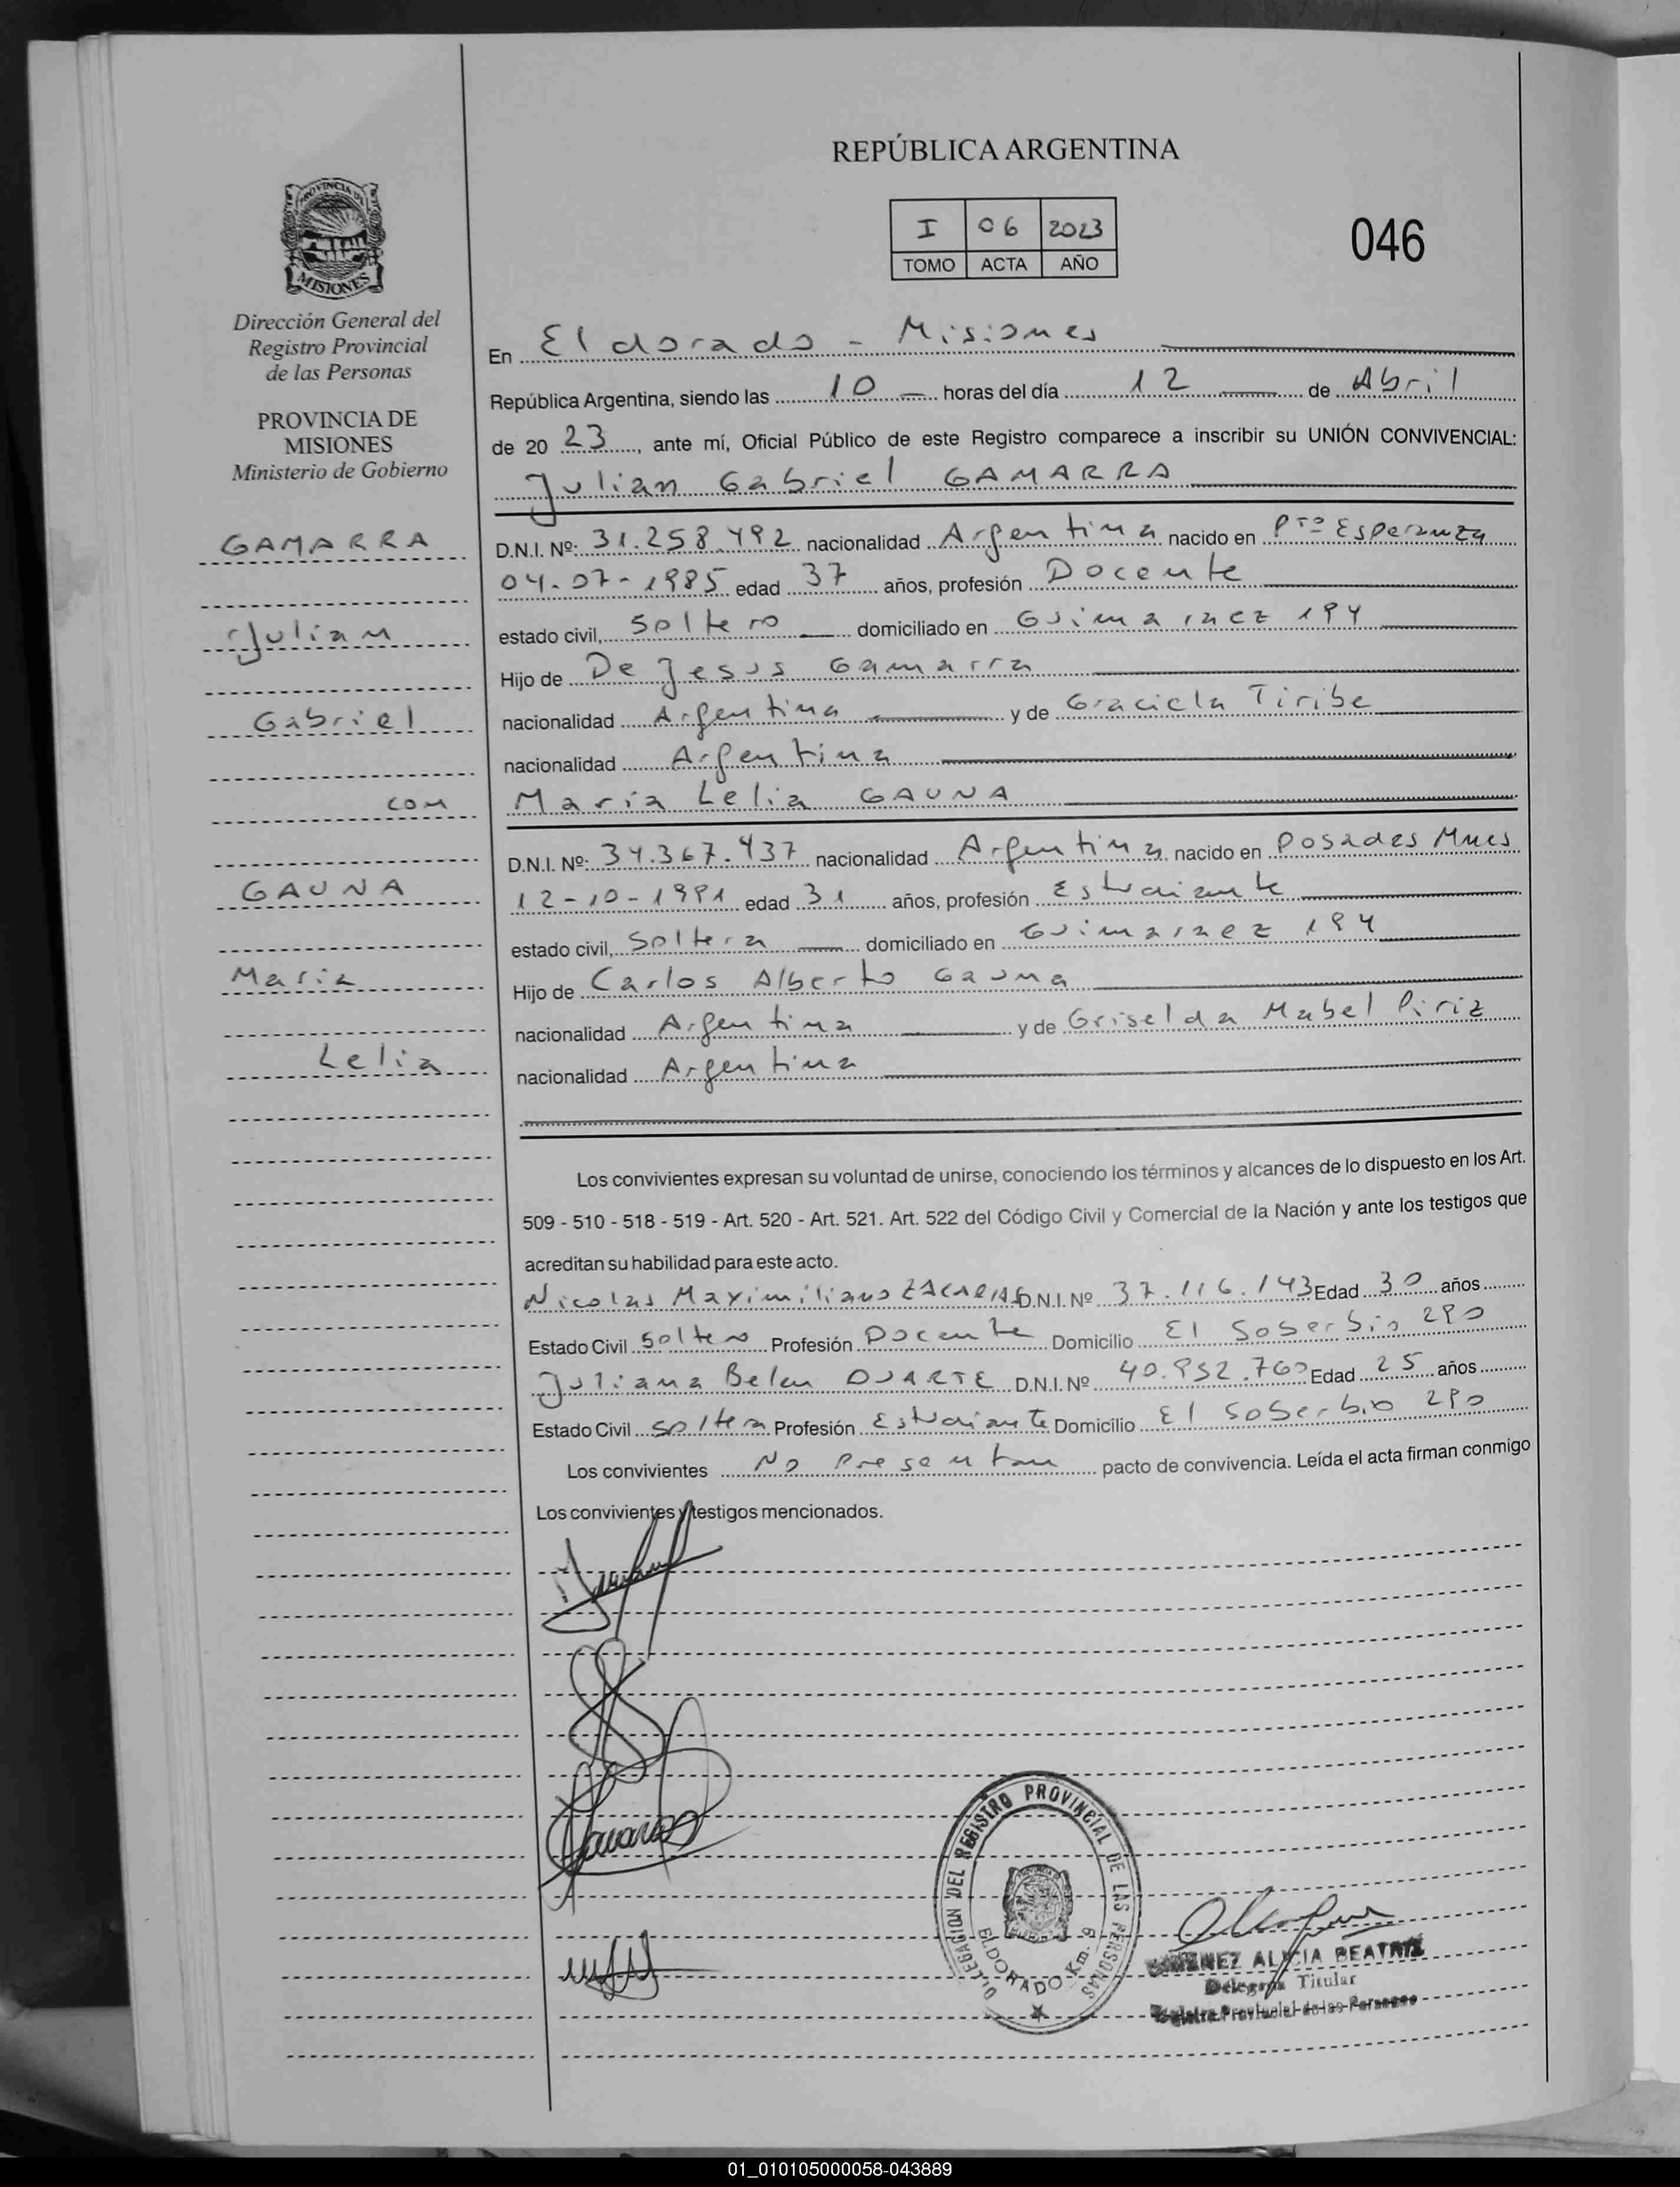 REPÚBLICA ARGENTINA
I 06 2023
TOMO ACTA AÑO
046
PROVINCIA DE
MISIONES
Dirección General del
Registro Provincial
de las Personas
PROVINCIA DE
MISIONES
Ministerio de Gobierno
GAMARRA
Julian
Gabriel
con
GAUNA
Maria
Lelia
En Eldorado - Misiones
República Argentina, siendo las 10 horas del día 12 de Abril
de 20 23, ante mí, Oficial Público de este Registro comparece a inscribir su UNIÓN CONVIVENCIAL:
Julian Gabriel GAMARRA
D.N.I. Nº: 31.258.492 nacionalidad Argentina nacido en Pto Esperanza
04-07-1985 edad 37 años, profesión Docente
estado civil, Soltero domiciliado en Guimaraez 194
Hijo de De Jesus Gamarra
nacionalidad Argentina y de Graciela Tiribe
nacionalidad Argentina
Maria Lelia GAUNA
D.N.I. Nº: 34.367.437 nacionalidad Argentina nacido en Posadas Mnes
12-10-1991 edad 31 años, profesión Estudiante
estado civil, Soltera domiciliado en Guimaraez 194
Hijo de Carlos Alberto Gauna
nacionalidad Argentina y de Griselda Mabel Piriz
nacionalidad Argentina
Los convivientes expresan su voluntad de unirse, conociendo los términos y alcances de lo dispuesto en los Art.
509 - 510 - 518 - 519 - Art. 520 - Art. 521. Art. 522 del Código Civil y Comercial de la Nación y ante los testigos que
acreditan su habilidad para este acto.
Nicolas Maximiliano ZACARIAS D.N.I. Nº 37.116.143 Edad 30 años
Estado Civil Soltero Profesión Docente Domicilio El Soberbio 290
Juliana Belen DUARTE D.N.I. Nº 40.952.760 Edad 25 años
Estado Civil Soltera Profesión Estudiante Domicilio El Soberbio 290
Los convivientes No Presentan pacto de convivencia. Leída el acta firman conmigo
Los convivientes y testigos mencionados.
DELEGACION DEL REGISTRO PROVINCIAL DE LAS PERSONAS
ELDORADO Km. 9
GIMENEZ ALICIA BEATRIZ
Delegada Titular
Registro Provincial de las Personas
01_010105000058-043889